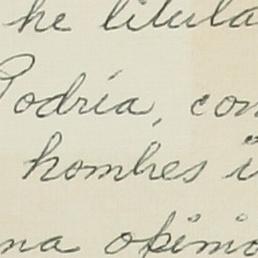 he titula
Podría, com
hombres i
na opinio